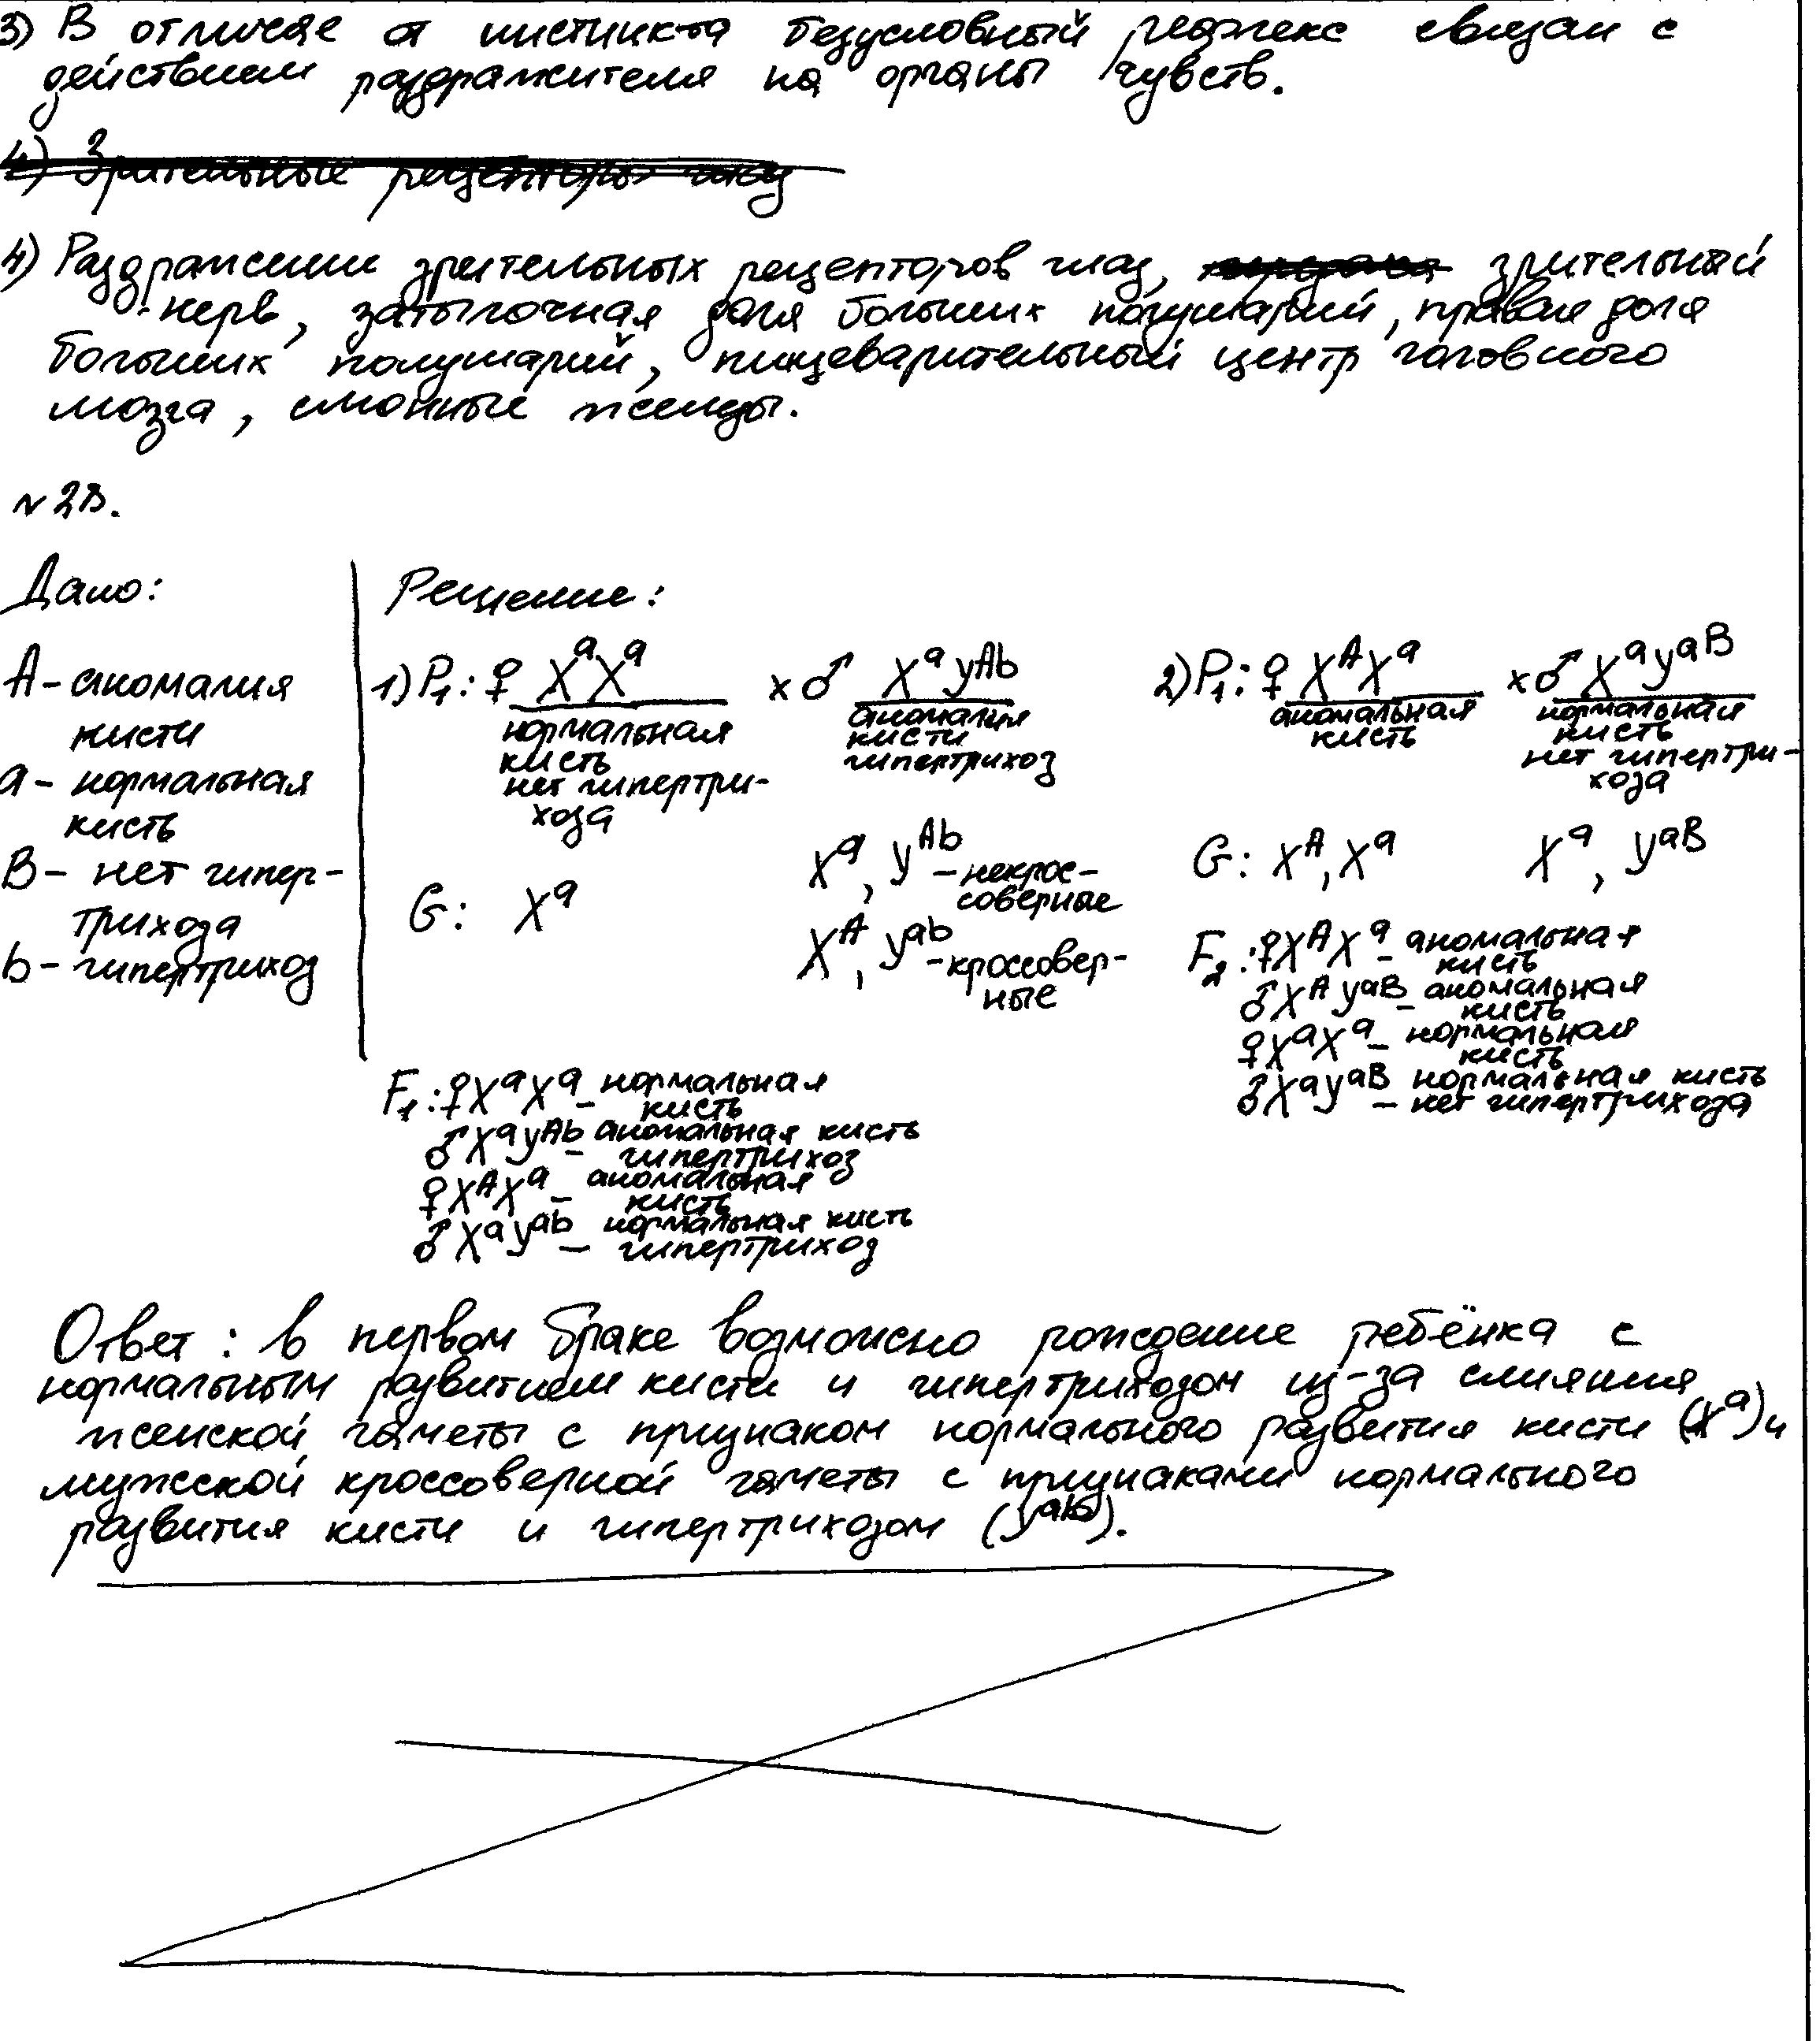 3) В отличае от инстинкта безусловный рефлекс связан с
действием раздражителя на органы чувств.
4) Зрительные рецепторы глаз
4) Раздражение зрительных рецепторов глаз, зрительный
нерв, затылочная доля больших полушарий, правая доля
больших полушарий, пищеварительный центр головного
мозга, слюнные железы.
№ 28.
Дано:
A - аномалия
кисти
a - нормальная
кисть
B - нет гипер-
трихоза
b - гипертрихоз
Решение:
1) P₁: ♀ XᵃXᵃ x ♂ XᵃYᴬᵇ
нормальная кисть нет гипертри-хоза
аномалия кисти гипертрихоз
G: Xᵃ
Xᵃ, Yᴬᵇ - некрос-
соверные
Xᴬ, Yᵃᵇ - кроссовер-
ные
F₁: ♀XᵃXᵃ - нормальная
кисть
♂XᵃYᴬᵇ - аномальная кисть
гипертрихоз
♀XᴬXᵃ - аномальная
кисть
♂XᵃYᵃᵇ - нормальная кисть
гипертрихоз
2) P₁: ♀ XᴬXᵃ x ♂ XᵃYᵃᴮ
аномальная кисть
нормальная кисть нет гипертри-хоза
G: Xᴬ, Xᵃ Xᵃ, Yᵃᴮ
F₂: ♀XᴬXᵃ - аномальная
кисть
♂XᴬYᵃᴮ - аномальная
кисть
♀XᵃXᵃ - нормальная
кисть
♂XᵃYᵃᴮ - нормальная кисть
нет гипертрихоза
Ответ: в первом браке возможно рождение ребёнка с
нормальным развитием кисти и гипертрихозом из-за слияния
женской гаметы с признаком нормального развития кисти (Xᵃ) и
мужской кроссоверной гаметы с признаками нормального
развития кисти и гипертрихозом (Yᵃᵇ).